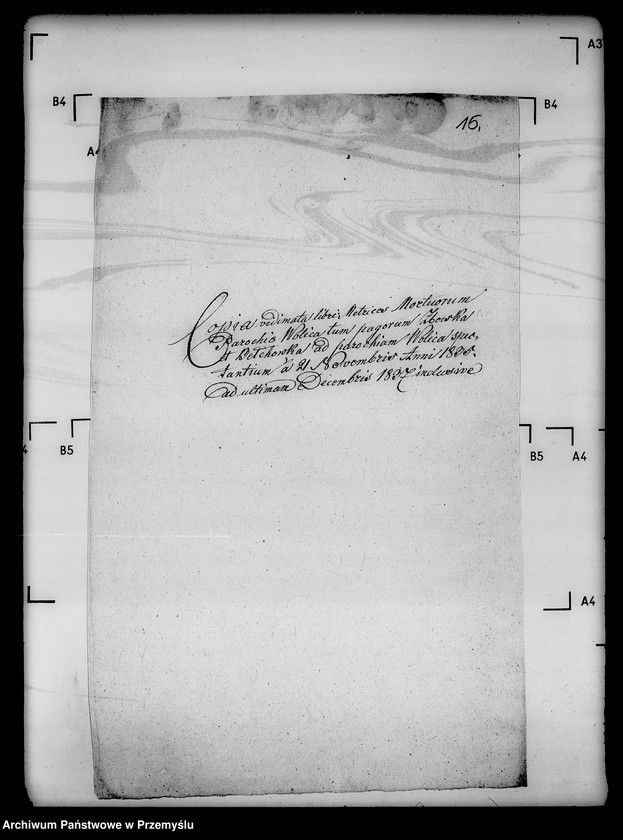 A3
B4
B4
16.
A4
Copia vidimata libri Metrices Mortuorum
Parochie Wolica tum pagorum
et ad parochiam Wolica spec-
tantium a 21 Novembris Anni
ad ultimam Decembris 1837 inclusive
4
B5
B5
A4
A4
Archiwum Państwowe w Przemyślu